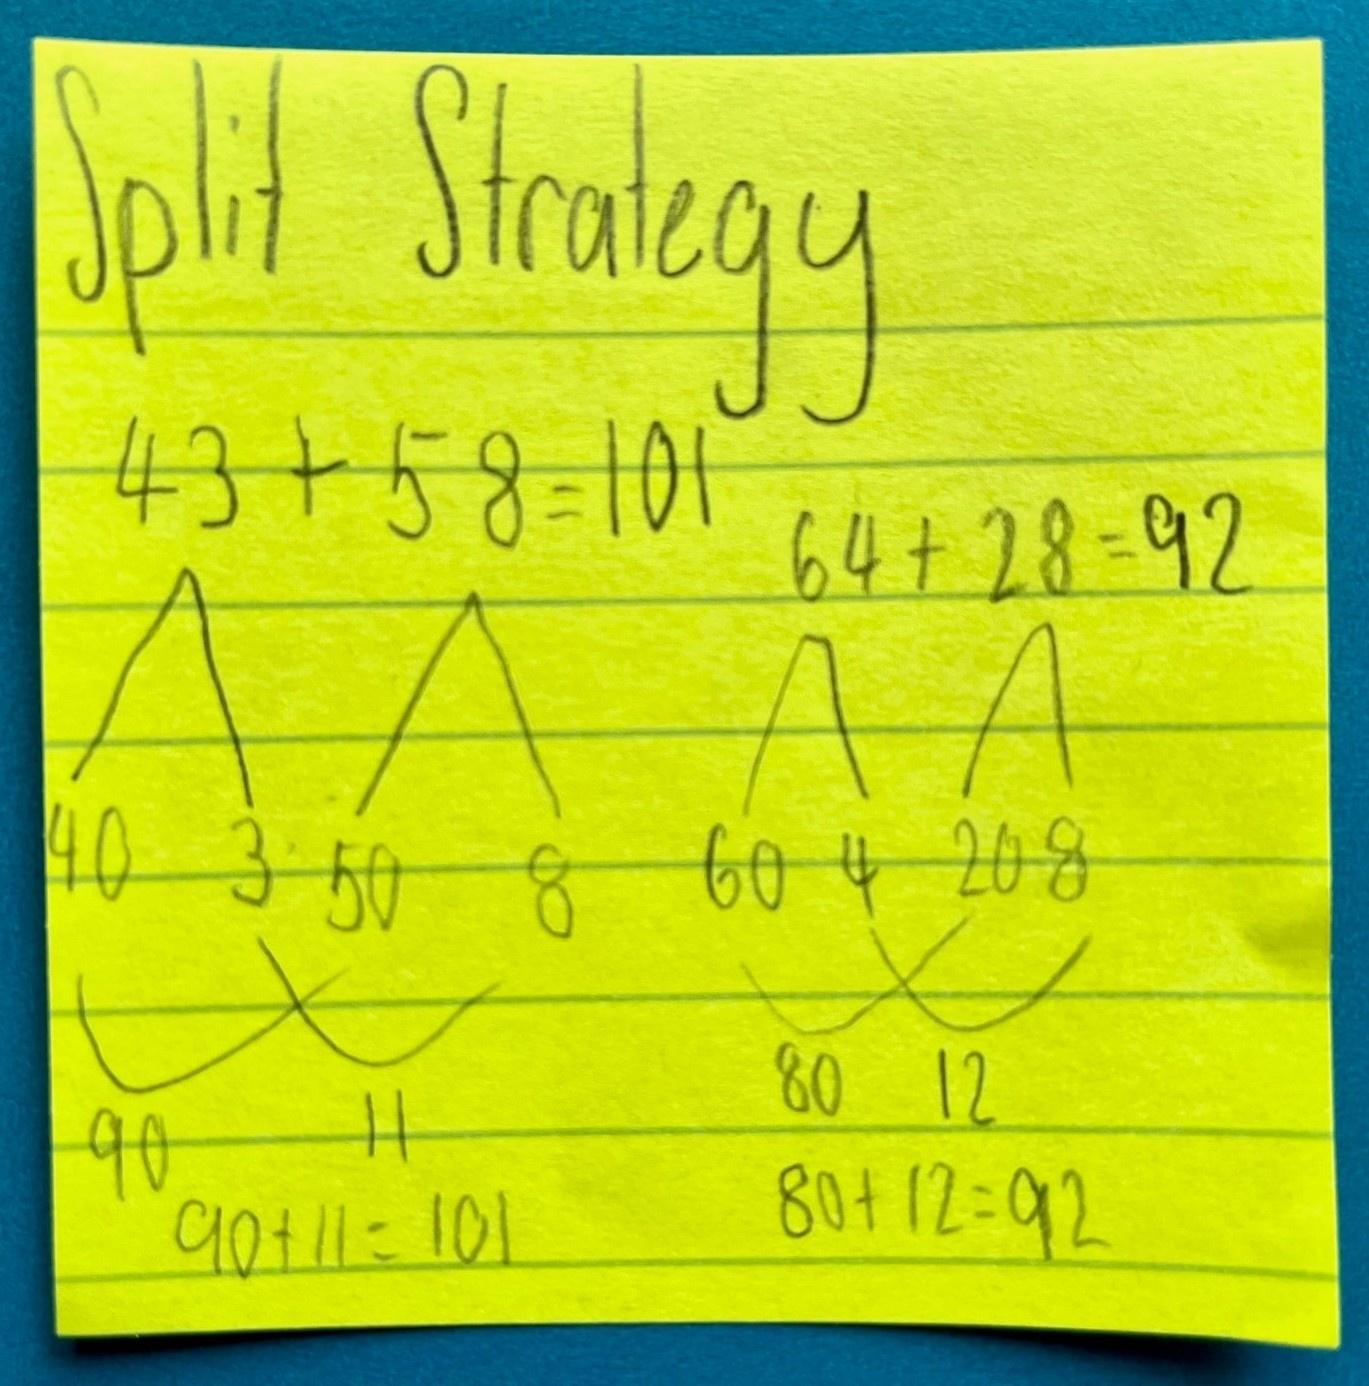 Split Strategy
43 + 58 = 101
64 + 28 = 92
40 3 50 8
60 4 20 8
90 11
80 12
90 + 11 = 101
80 + 12 = 92